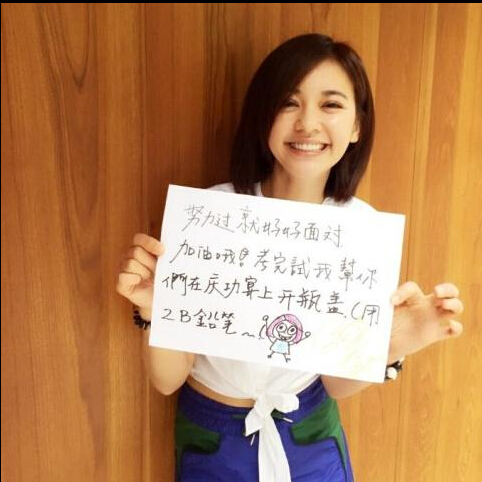 努力过就好好面对
加油哦!考完試我幫你
們在庆功宴上开瓶盖.(用
2B鉛笔~